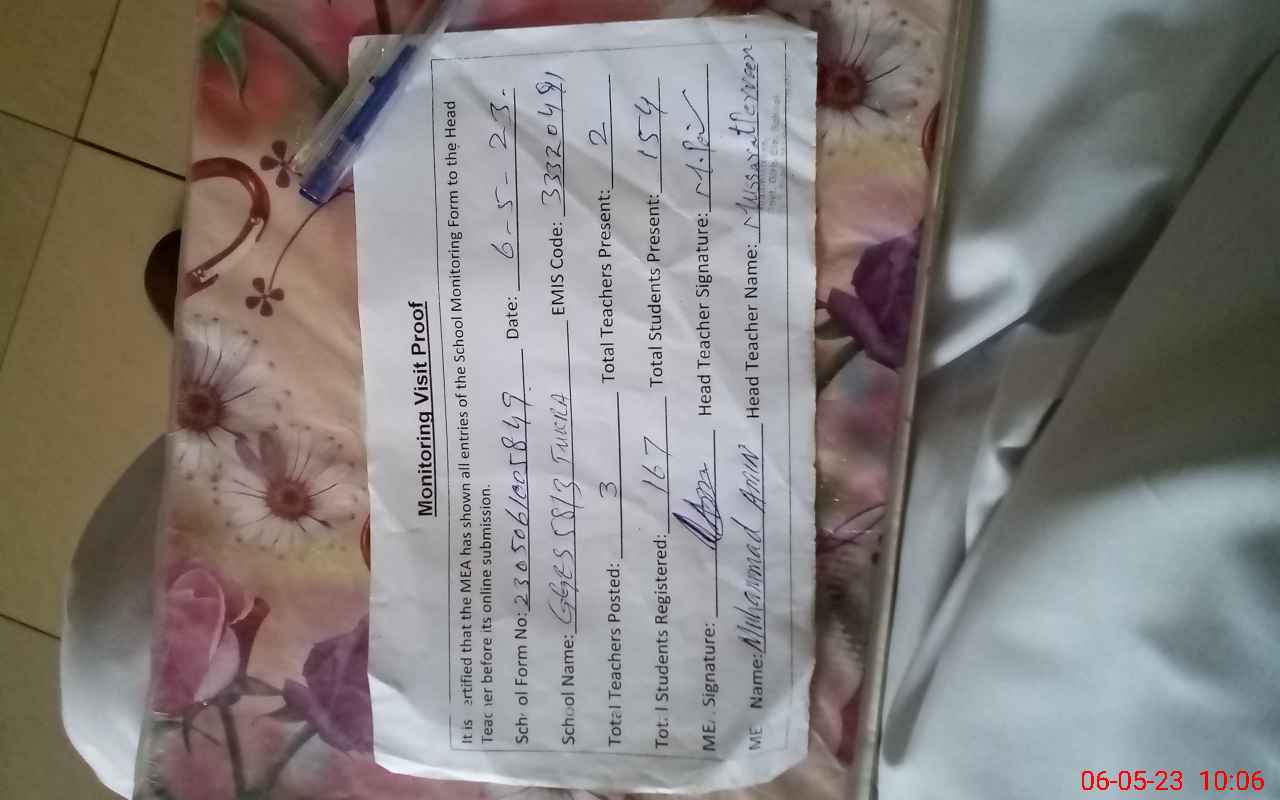 Monitoring Visit Proof
It is ertified that the MEA has shown all entries of the School Monitoring Form to the Head
Teacher before its online submission.
School Form No: 2305061005849 Date: 6-5-23.
School Name: GGES 58/3 TUKRA EMIS Code: 33320491
Total Teachers Posted: 3 Total Teachers Present: 2
Total Students Registered: 167 Total Students Present: 154
MEA Signature: Head Teacher Signature:
MEA Name: Muhammad AMIN Head Teacher Name: Mussarat Perveen.
06-05-23 10:06